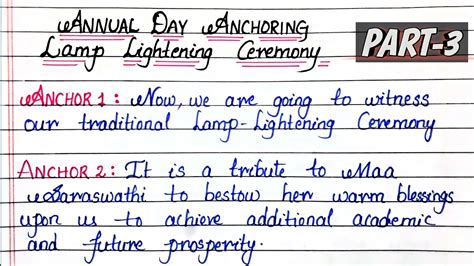 ANNUAL DAY ANCHORING
Lamp Lightening Ceremony
PART-3
ANCHOR 1 : Now, we are going to witness
our traditional Lamp-Lightening Ceremony
ANCHOR 2 : It is a tribute to Maa
Saraswathi to bestow her warm blessings
upon us to achieve additional academic
and future prosperity.